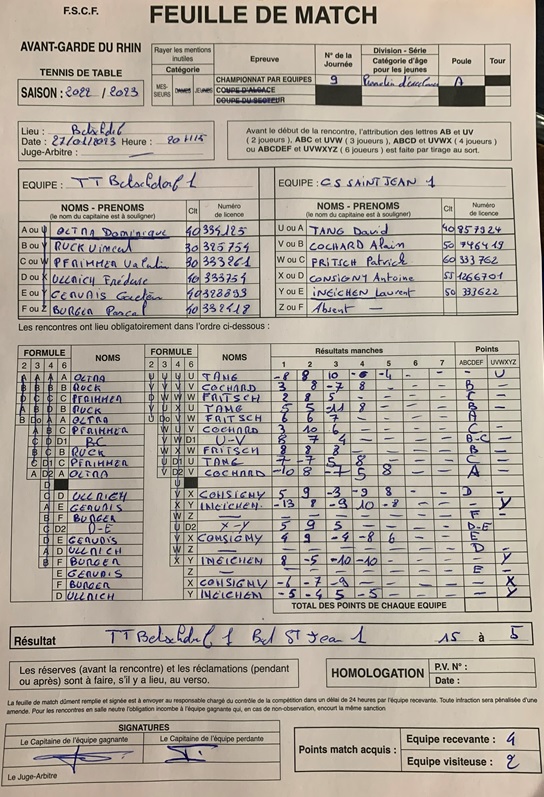 F.S.C.F.
FEUILLE DE MATCH
AVANT-GARDE DU RHIN
TENNIS DE TABLE
SAISON : 2022 / 2023
Rayer les mentions inutiles
Catégorie
MESSIEURS DAMES JEUNES
Epreuve
CHAMPIONNAT PAR EQUIPES
COUPE D'ALSACE
COUPE DU SECTEUR
N° de la Journée
9
Division - Série
Catégorie d'âge pour les jeunes
Poule
A
Tour
Lieu : Betschdorf
Date : 27/01/2023 Heure : 20H15
Juge-Arbitre : —
Avant le début de la rencontre, l'attribution des lettres AB et UV
( 2 joueurs ), ABC et UVW ( 3 joueurs ), ABCD et UVWX ( 4 joueurs )
ou ABCDEF et UVWXYZ ( 6 joueurs ) est faite par tirage au sort.
EQUIPE : TT Betschdorf 1
EQUIPE : CS SAINT JEAN 1
NOMS - PRENOMS Clt Numéro de licence
(le nom du capitaine est à souligner)
NOMS - PRENOMS Clt Numéro de licence
(le nom du capitaine est à souligner)
A ou U OLTRA Dominique 40 334125
U ou A TANG David 40 857924
B ou V RUCK Vincent 30 325754
V ou B COCHARD Alain 50 746419
C ou W PFRIMMER Valentin 30 333261
W ou C FRITSCH Patrick 60 333762
D ou X ULLRICH 40 333754
X ou D CONSIGNY Antoine 55 1266701
E ou Y GERVAIS 40
Y ou E INEICHEN Laurent 50 333622
F ou Z BURGER Pascal 40 332418
Z ou F Absent —
Les rencontres ont lieu obligatoirement dans l'ordre ci-dessous :
FORMULE NOMS FORMULE NOMS Résultats manches Points
2 3 4 6 2 3 4 6 1 2 3 4 5 6 7 ABCDEF UVWXYZ
OLTRA TANG -8 8 10 -6 -4 - - - U
RUCK COCHARD 3 8 -7 8 - - - B -
PFRIMMER FRITSCH 2 8 5 - - - - C -
RUCK TANG 5 5 -11 8 - - - B -
OLTRA FRITSCH 6 6 7 - - - - A -
PFRIMMER COCHARD 3 10 6 - - - - C -
BC U-V 8 7 4 - - - - B-C -
RUCK FRITSCH 8 8 8 - - - - B -
PFRIMMER TANG -7 -7 5 8 - - C -
OLTRA COCHARD -10 8 -7 5 8 - - A -
ULLRICH CONSIGNY 5 9 -3 -9 8 - - D -
GERVAIS INEICHEN -13 8 -9 10 -8 - - - Y
BURGER — F -
D-E X-Y 5 9 5 - - - - D-E -
GERVAIS CONSIGNY 4 9 -4 -8 6 - - E -
ULLRICH — D -
BURGER INEICHEN 8 -5 -10 -10 - - - - Y
GERVAIS — E -
BURGER CONSIGNY -6 -7 -9 - - - - - X
ULLRICH INEICHEN -5 -4 5 -5 - - - - Y
TOTAL DES POINTS DE CHAQUE EQUIPE
Résultat TT Betschdorf 1 Bat St Jean 1 15 à 5
Les réserves (avant la rencontre) et les réclamations (pendant
ou après) sont à faire, s'il y a lieu, au verso.
HOMOLOGATION
P.V. N° :
Date :
La feuille de match dûment remplie et signée est à envoyer au responsable chargé du contrôle de la compétition dans un délai de 24 heures par l'équipe recevante. Toute infraction sera pénalisée d'une
amende. Pour les rencontres en salle neutre l'obligation incombe à l'équipe gagnante qui, en cas de non-observation, encourt la même sanction.
SIGNATURES
Le Capitaine de l'équipe gagnante
Le Capitaine de l'équipe perdante
Le Juge-Arbitre
Points match acquis :
Equipe recevante : 4
Equipe visiteuse : 2